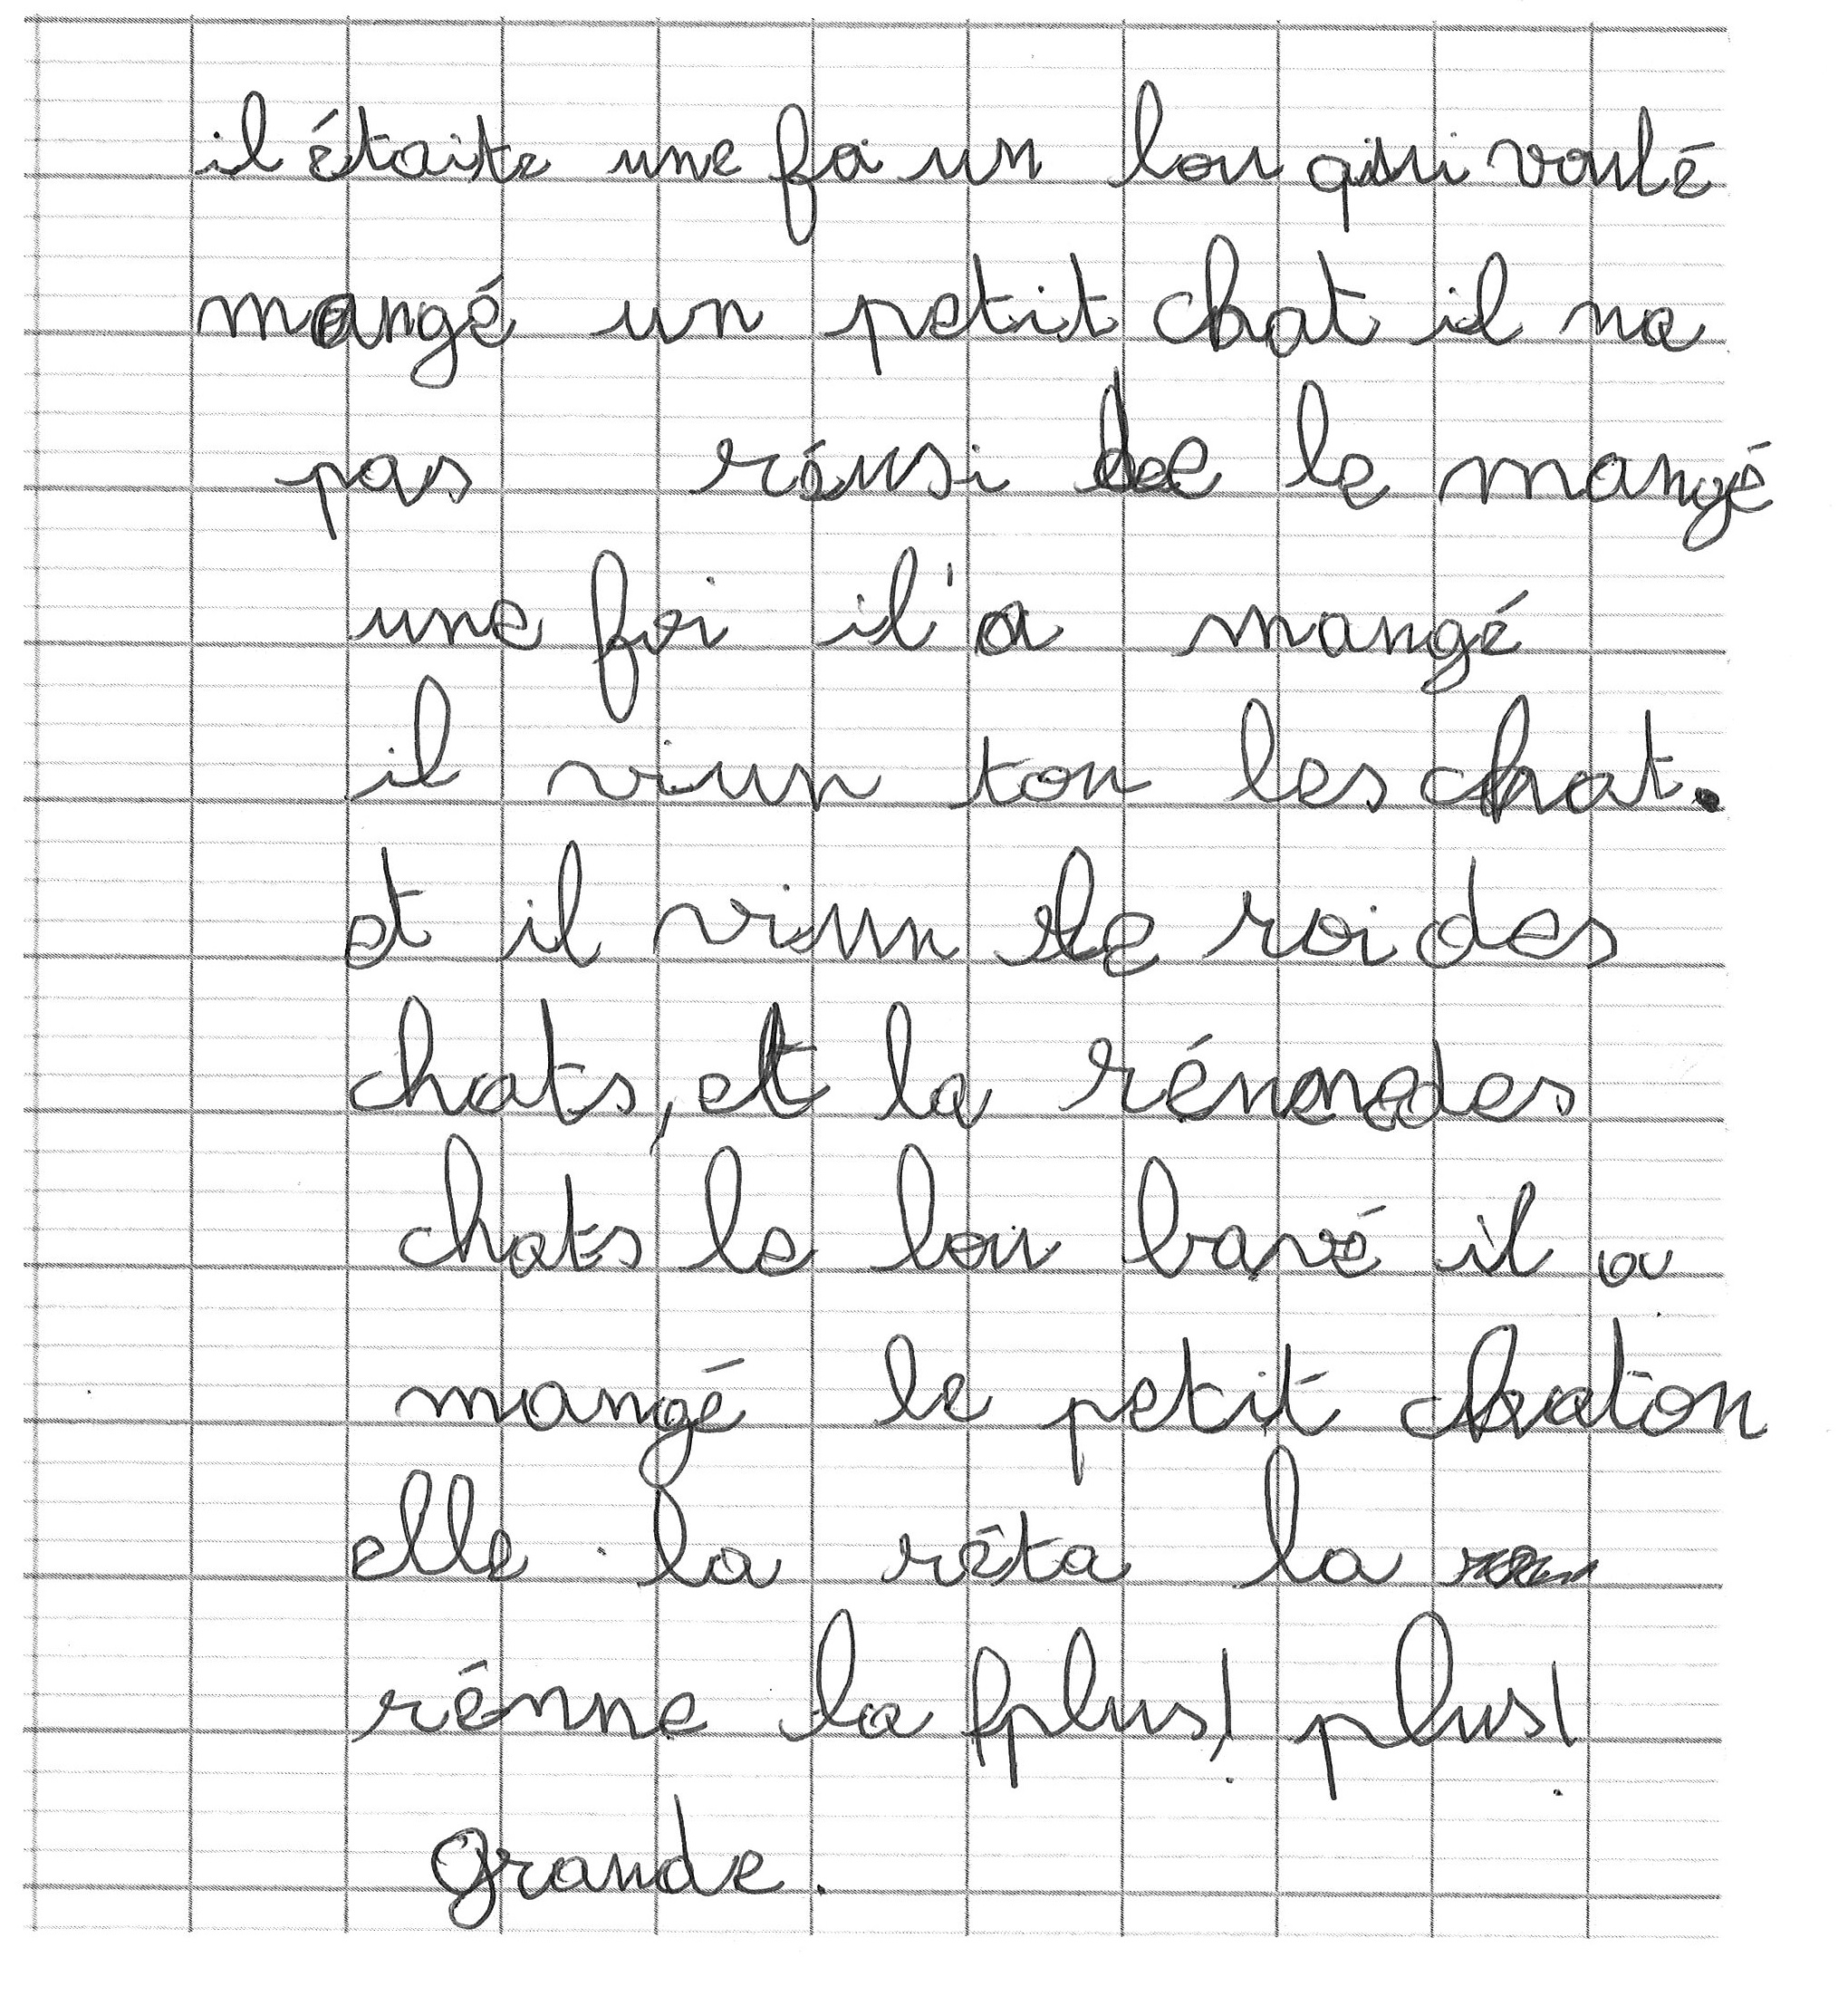 il étaite une foi un lou qui voulé
mangé un petit chat il na
pas réusi de le mangé
une foi il'a mangé
il viun tou les chat.
et il viun le roi des
chats, et la rénne des
chats le lou bavé il a
mangé le petit chaton
elle la réta la
rénne la plus! plus!
grande.